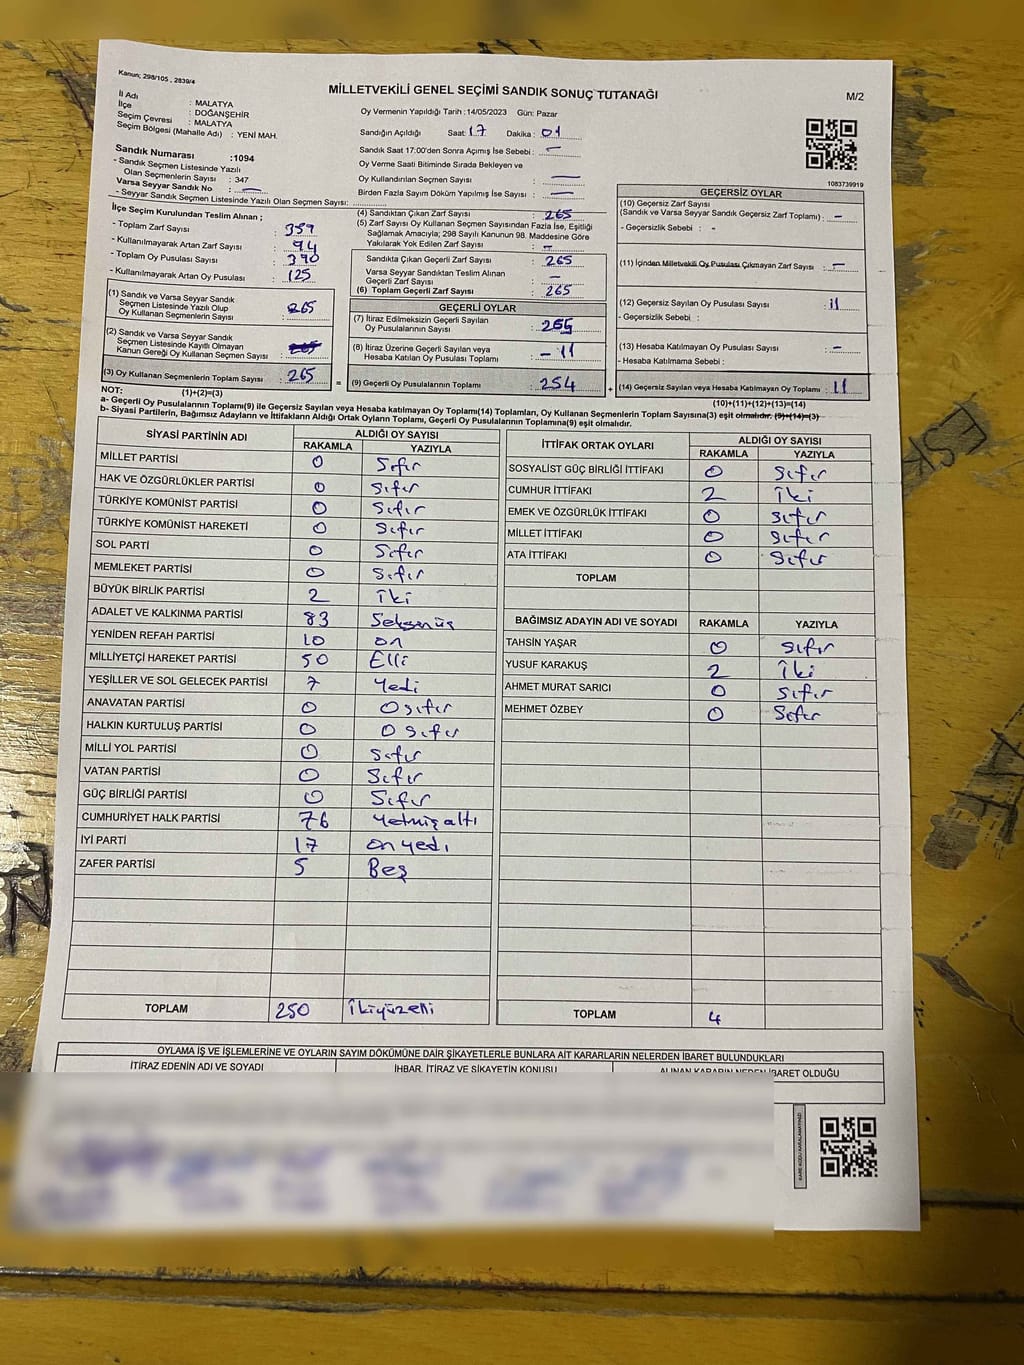 Kanun; 298/105 , 2839/4
MİLLETVEKİLİ GENEL SEÇİMİ SANDIK SONUÇ TUTANAĞI
M/2
İl Adı : MALATYA
İlçe : DOĞANŞEHİR
Seçim Çevresi : MALATYA
Seçim Bölgesi (Mahalle Adı) : YENİ MAH.
Sandık Numarası :1094
- Sandık Seçmen Listesinde Yazılı
Olan Seçmenlerin Sayısı : 347
Varsa Seyyar Sandık No : —
- Seyyar Sandık Seçmen Listesinde Yazılı Olan Seçmen Sayısı:
Oy Vermenin Yapıldığı Tarih :14/05/2023 Gün: Pazar
Sandığın Açıldığı Saat: 17 Dakika : 01
Sandık Saat 17:00'den Sonra Açımış İse Sebebi : —
Oy Verme Saati Bitiminde Sırada Bekleyen ve
Oy Kullandırılan Seçmen Sayısı : —
Birden Fazla Sayım Döküm Yapılmış İse Sayısı : —
1083739919
İlçe Seçim Kurulundan Teslim Alınan ;
- Toplam Zarf Sayısı : 359
- Kullanılmayarak Artan Zarf Sayısı : 94
- Toplam Oy Pusulası Sayısı : 390
- Kullanılmayarak Artan Oy Pusulası : 125
(1) Sandık ve Varsa Seyyar Sandık
Seçmen Listesinde Yazılı Olup
Oy Kullanan Seçmenlerin Sayısı : 265
(2) Sandık ve Varsa Seyyar Sandık
Seçmen Listesinde Kayıtlı Olmayan
Kanun Gereği Oy Kullanan Seçmen Sayısı :
(3) Oy Kullanan Seçmenlerin Toplam Sayısı : 265
(1)+(2)=(3)
(4) Sandıktan Çıkan Zarf Sayısı : 265
(5) Zarf Sayısı Oy Kullanan Seçmen Sayısından Fazla İse, Eşitliği
Sağlamak Amacıyla; 298 Sayılı Kanunun 98. Maddesine Göre
Yakılarak Yok Edilen Zarf Sayısı : -
Sandıkta Çıkan Geçerli Zarf Sayısı : 265
Varsa Seyyar Sandıktan Teslim Alınan
Geçerli Zarf Sayısı : —
(6) Toplam Geçerli Zarf Sayısı : 265
GEÇERLİ OYLAR
(7) İtiraz Edilmeksizin Geçerli Sayılan
Oy Pusulalarının Sayısı :
(8) İtiraz Üzerine Geçerli Sayılan veya
Hesaba Katılan Oy Pusulası Toplamı : - 11
= (9) Geçerli Oy Pusulalarının Toplamı : 254
GEÇERSİZ OYLAR
(10) Geçersiz Zarf Sayısı
(Sandık ve Varsa Seyyar Sandık Geçersiz Zarf Toplamı) : -
- Geçersizlik Sebebi : -
(11) İçinden Milletvekili Oy Pusulası Çıkmayan Zarf Sayısı : -
(12) Geçersiz Sayılan Oy Pusulası Sayısı : 11
- Geçersizlik Sebebi :
(13) Hesaba Katılmayan Oy Pusulası Sayısı : -
- Hesaba Katılmama Sebebi :
+ (14) Geçersiz Sayılan veya Hesaba Katılmayan Oy Toplamı : 11
(10)+(11)+(12)+(13)=(14)
NOT:
a- Geçerli Oy Pusulalarının Toplamı(9) ile Geçersiz Sayılan veya Hesaba katılmayan Oy Toplamı(14) Toplamları, Oy Kullanan Seçmenlerin Toplam Sayısına(3) eşit olmalıdır. (9)+(14)=(3)
b- Siyasi Partilerin, Bağımsız Adayların ve İttifakların Aldığı Ortak Oyların Toplamı, Geçerli Oy Pusulalarının Toplamına(9) eşit olmalıdır.
SİYASİ PARTİNİN ADI ALDIĞI OY SAYISI
RAKAMLA YAZIYLA
MİLLET PARTİSİ 0 Sıfır
HAK VE ÖZGÜRLÜKLER PARTİSİ 0 Sıfır
TÜRKİYE KOMÜNİST PARTİSİ 0 Sıfır
TÜRKİYE KOMÜNİST HAREKETİ 0 Sıfır
SOL PARTİ 0 Sıfır
MEMLEKET PARTİSİ 0 Sıfır
BÜYÜK BİRLİK PARTİSİ 2 İki
ADALET VE KALKINMA PARTİSİ 83 Seksenüç
YENİDEN REFAH PARTİSİ 10 on
MİLLİYETÇİ HAREKET PARTİSİ 50 Elli
YEŞİLLER VE SOL GELECEK PARTİSİ 7 Yedi
ANAVATAN PARTİSİ 0 0 sıfır
HALKIN KURTULUŞ PARTİSİ 0 0 sıfır
MİLLİ YOL PARTİSİ 0 Sıfır
VATAN PARTİSİ 0 Sıfır
GÜÇ BİRLİĞİ PARTİSİ 0 Sıfır
CUMHURİYET HALK PARTİSİ 76 Yetmişaltı
İYİ PARTİ 17 onyedi
ZAFER PARTİSİ 5 Beş
TOPLAM 250 İkiyüzelli
İTTİFAK ORTAK OYLARI ALDIĞI OY SAYISI
RAKAMLA YAZIYLA
SOSYALİST GÜÇ BİRLİĞİ İTTİFAKI 0 Sıfır
CUMHUR İTTİFAKI 2 İki
EMEK VE ÖZGÜRLÜK İTTİFAKI 0 Sıfır
MİLLET İTTİFAKI 0 Sıfır
ATA İTTİFAKI 0 Sıfır
TOPLAM
BAĞIMSIZ ADAYIN ADI VE SOYADI RAKAMLA YAZIYLA
TAHSİN YAŞAR 0 Sıfır
YUSUF KARAKUŞ 2 İki
AHMET MURAT SARICI 0 Sıfır
MEHMET ÖZBEY 0 Sıfır
TOPLAM 4
OYLAMA İŞ VE İŞLEMLERİNE VE OYLARIN SAYIM DÖKÜMÜNE DAİR ŞİKAYETLERLE BUNLARA AİT KARARLARIN NELERDEN İBARET BULUNDUKLARI
İTİRAZ EDENİN ADI VE SOYADI İHBAR, İTİRAZ VE ŞİKAYETİN KONUSU ALINAN KARARIN NEDEN İBARET OLDUĞU
KARE KODU KARALAMAYINIZ!